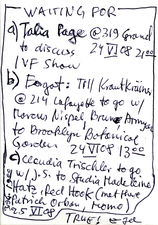 WAITING FOR
a) Talia Page @ 319 Grand
to discuss 24 VI 08 2100
VF Show
b) Fogot: Till Krautkrämer
@ 214 Lafayette to go w/
Marcus Nispel, Brune
to Brooklyn Botanical
Garden 24 VI 08 1300
c) Claudia Trischler to go
w/ J.S. to Studia Madeleine
Hatz, Red Hook (met have
Patrick Orban / home)
25 VI 08